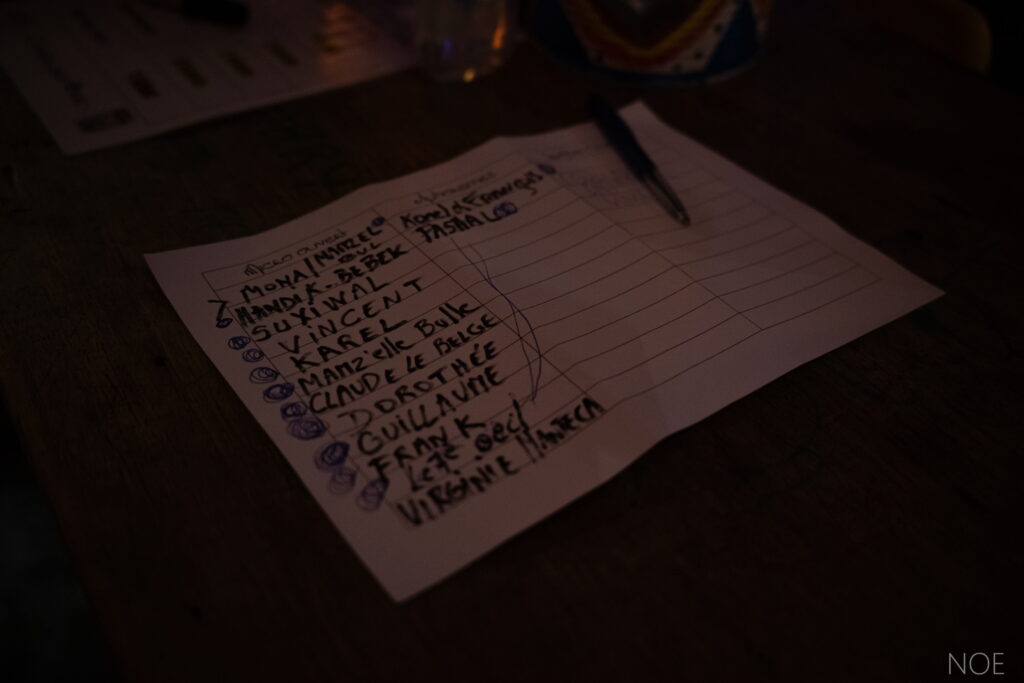 MICRO OUVERT
MONA / MARCEL
HANDI K. BEBEK
SUXIWAL
VINCENT
KAREL
MAMZ'elle Bulle
CLAUDE LE BELGE
DOROTHÉE
GUILLAUME
FRANK
Le 7e Œil
VIRGINIE MANTECA
Karel & François
PASKAL
NOE